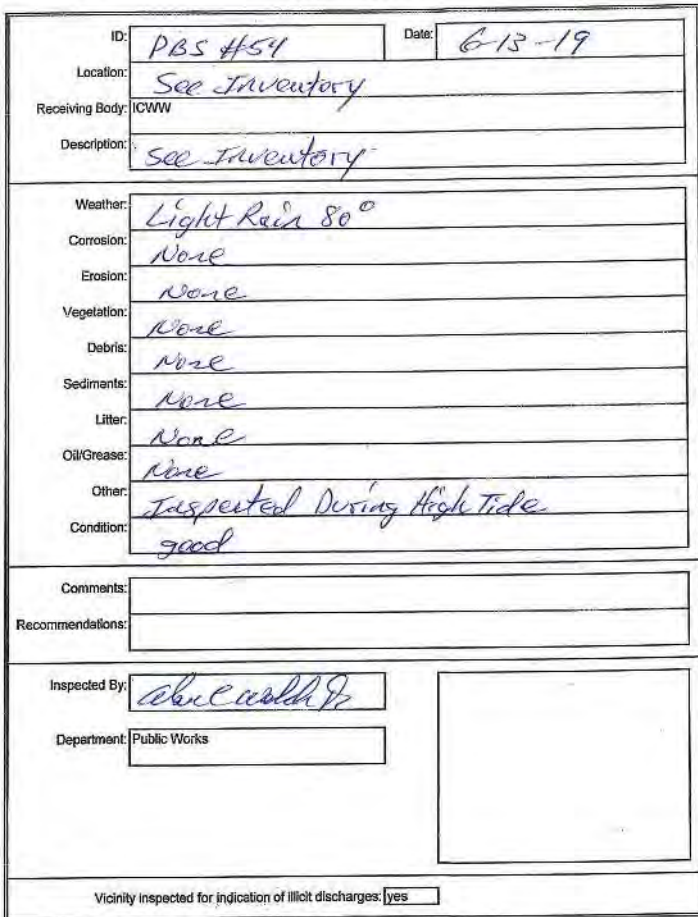 ID: PBS #54 Date: 6-13-19
Location: See Inventory
Receiving Body: ICWW
Description: See Inventory
Weather: Light Rain 80°
Corrosion: None
Erosion: None
Vegetation: None
Debris: None
Sediments: None
Litter: None
Oil/Grease: None
Other: Inspected During High Tide
Condition: good
Comments:
Recommendations:
Inspected By:
Department: Public Works
Vicinity inspected for indication of illicit discharges: yes